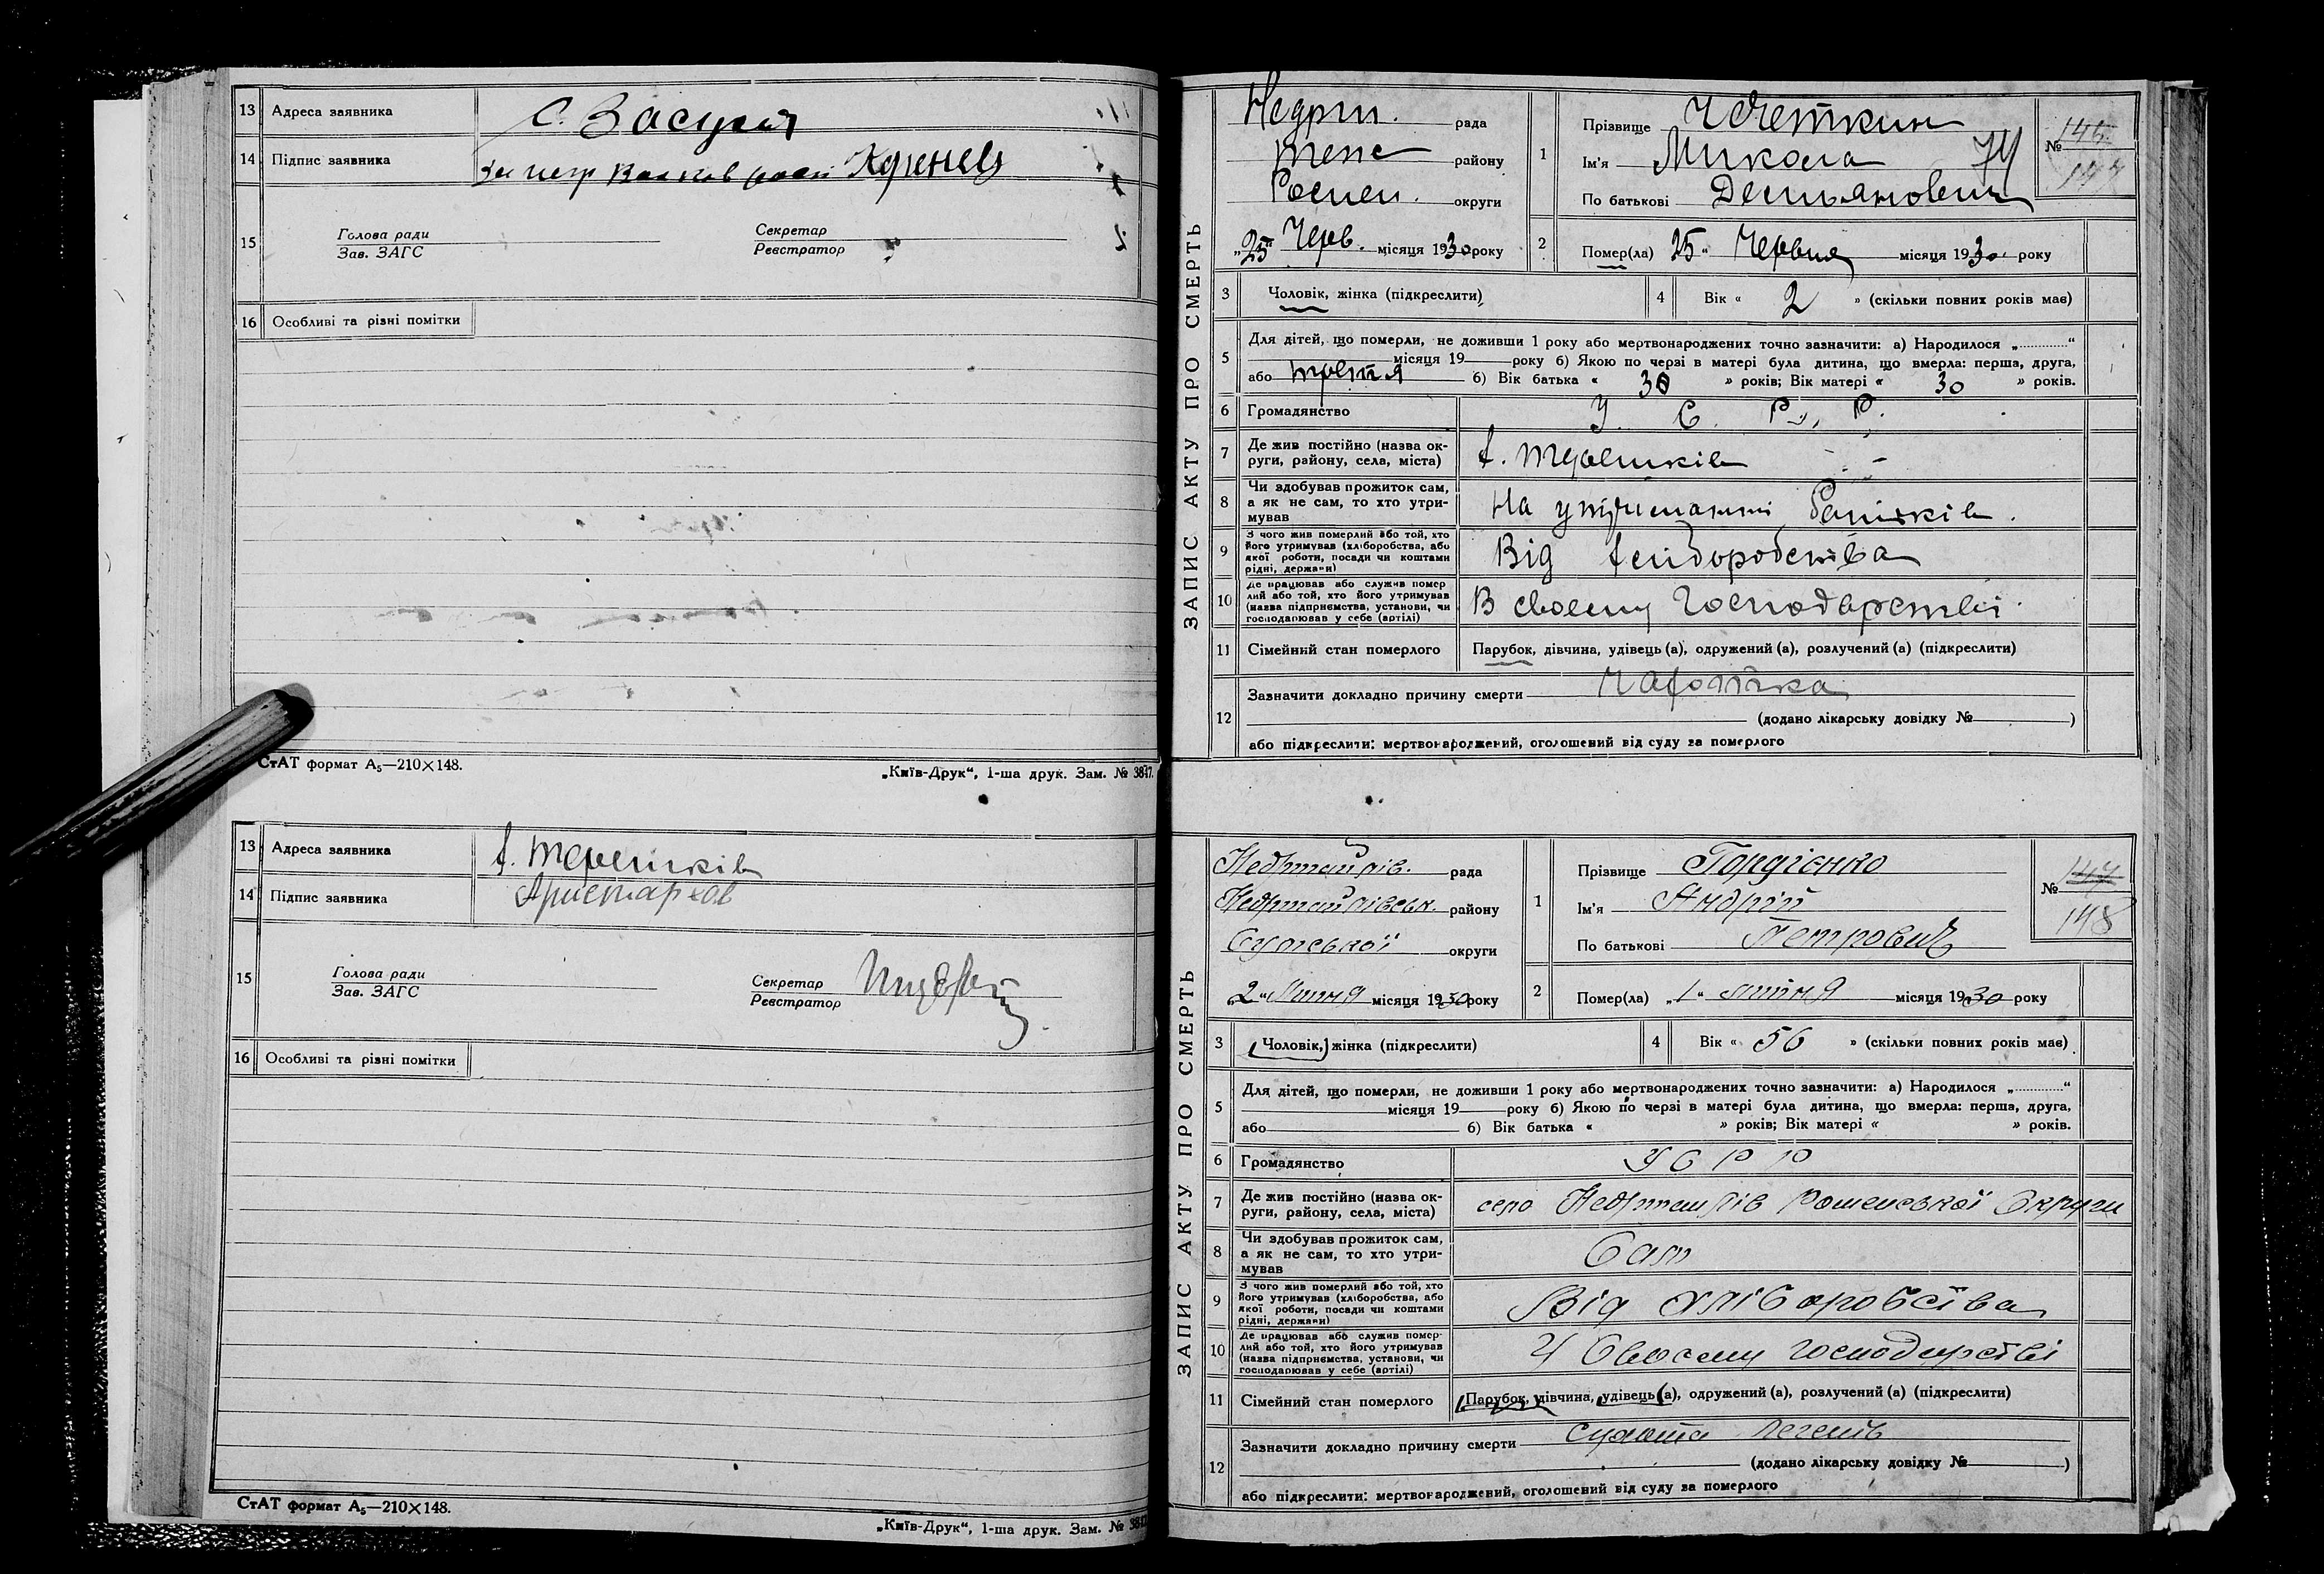 13 Адреса заявника с. Засулля
14 Підпис заявника
15 Голова ради Секретар
Зав. ЗАГС Реєстратор
16 Особливі та різні помітки
СтАТ формат А₅—210×148. „Київ-Друк“, 1-ша друк. Зам. № 3817.
13 Адреса заявника
14 Підпис заявника Аристархов
15 Голова ради Секретар
Зав. ЗАГС Реєстратор
16 Особливі та різні помітки
СтАТ формат А₅—210×148.
„Київ-Друк“, 1-ша друк. Зам. №
ЗАПИС АКТУ ПРО СМЕРТЬ
Недриг. рада
району
Ромен. округи
„25“ Черв. місяця 1930 року
1 Прізвище
Ім'я Микола 74
По батькові Демьянович
№ 146
147
2 Помер(ла) 25“ Червня місяця 1930 року
3 Чоловік, жінка (підкреслити)
4 Вік « 2 » (скільки повних років має)
5 Для дітей, що померли, не доживши 1 року або мертвонароджених точно зазначити: а) Народилося „............“
місяця 19 року б) Якою по черзі в матері була дитина, що вмерла: перша, друга,
або третя б) Вік батька « 30 » років; Вік матері « 30 » років.
6 Громадянство У. С. Р. Р.
7 Де жив постійно (назва ок-
руги, району, села, міста)
8 Чи здобував прожиток сам,
а як не сам, то хто утри-
мував
На утриманні Батьків.
9 З чого жив померлий або той, хто
його утримував (хліборобства, або
якої роботи, посади чи коштами
рідні, держави)
Від
10 Де працював або служив помер
лий або той, хто його утримував
(назва підприємства, установи, чи
господарював у себе (артілі)
В своему господарстві
11 Сімейний стан померлого Парубок, дівчина, удівець (а), одружений (а), розлучений (а) (підкреслити)
12 Зазначити докладно причину смерти
(додано лікарську довідку № )
або підкреслити: мертвонароджений, оголошений від суду за померлого
ЗАПИС АКТУ ПРО СМЕРТЬ
Недригайлів. рада
Недригайлівськ. району
Сумської округи
„2“ Липня місяця 1930 року
1 Прізвище Гордієнко
Ім'я Андрій
По батькові Петрович
№ 147
148
2 Помер(ла) „1“ липня місяця 1930 року
3 Чоловік, жінка (підкреслити)
4 Вік « 56 » (скільки повних років має)
5 Для дітей, що померли, не доживши 1 року або мертвонароджених точно зазначити: а) Народилося „............“
місяця 19 року б) Якою по черзі в матері була дитина, що вмерла: перша, друга,
або б) Вік батька « » років; Вік матері « » років.
6 Громадянство УСРР
7 Де жив постійно (назва ок-
руги, району, села, міста)
село Недригайлів Роменської Округи
8 Чи здобував прожиток сам,
а як не сам, то хто утри-
мував
Сам
9 З чого жив померлий або той, хто
його утримував (хліборобства, або
якої роботи, посади чи коштами
рідні, держави)
Від хліборобства
10 Де працював або служив помер-
лий або той, хто його утримував
(назва підприємства, установи, чи
господарював у себе (артілі)
У Своєму господарстві
11 Сімейний стан померлого Парубок, дівчина, удівець (а), одружений (а), розлучений (а) (підкреслити)
12 Зазначити докладно причину смерти Сухота легень
(додано лікарську довідку № )
або підкреслити: мертвонароджений, оголошений від суду за померлого